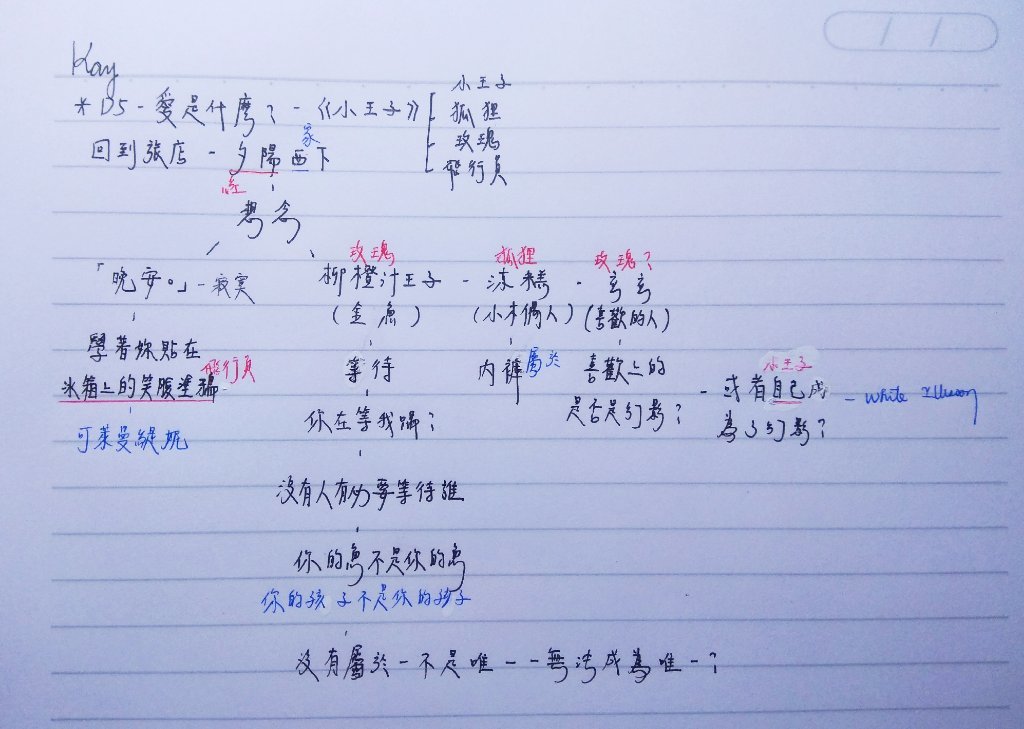 Kay
小王子
*D5-愛是什麼?-《小王子》
狐狸
家
玫瑰
回到張店-夕陽西下
飛行員
想念
玫瑰
狐狸
玫瑰?
「晚安。」-寂寞
柳橙汁王子-凍糕-玄玄
(金魚)
(小木偶人)
(喜歡的人)
學著妳貼在
飛行員
冰箱上的笑臉塗鴉
可萊曼緹妮
等待
內褲
屬於
喜歡上的
是否是幻影?
小王子
-或者自己成
為了幻影?
-White Illusion
你在等我嗎?
沒有人有必要等待誰
你的魚不是你的魚
你的孩子不是你的孩子
沒有屬於-不是唯一-無法成為唯一?